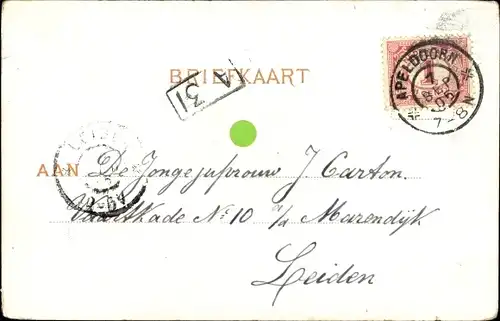 BRIEFKAART
A 31
APELDOORN
SEP 05
7-8N
AAN De Jongejufrouw J Carton.
Vaartkade No 10 a/d Marendijk
Leiden